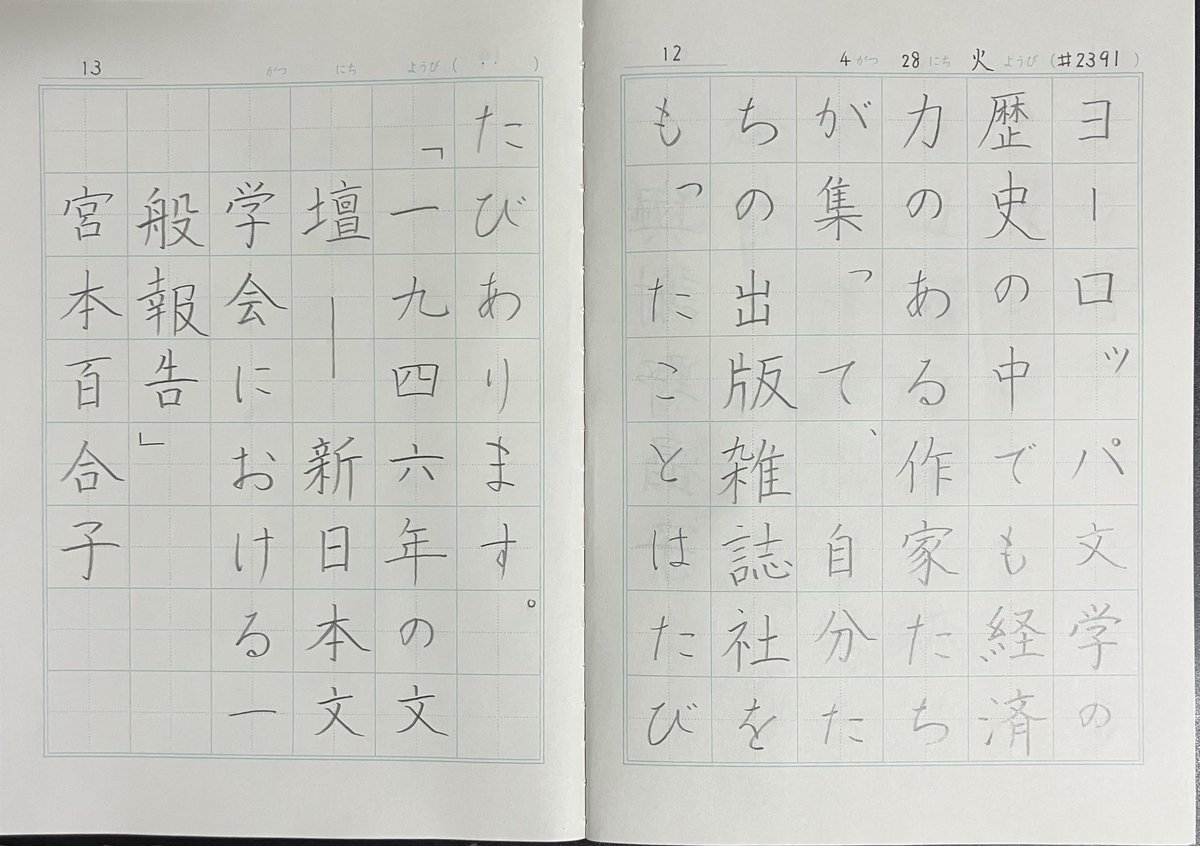 12
4がつ 28にち 火ようび (#2391)
ヨーロッパ文学の
歴史の中でも経済
力のある作家たち
が集って、自分た
ちの出版雑誌社を
もったことはたび
13
がつ にち ようび ( )
たびあります。
「一九四六年の文
壇―新日本文
学会における一
般報告」
宮本百合子